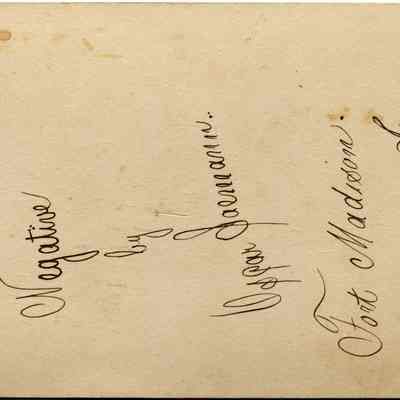 Negative
by
Oscar Joermann.
Fort Madison.